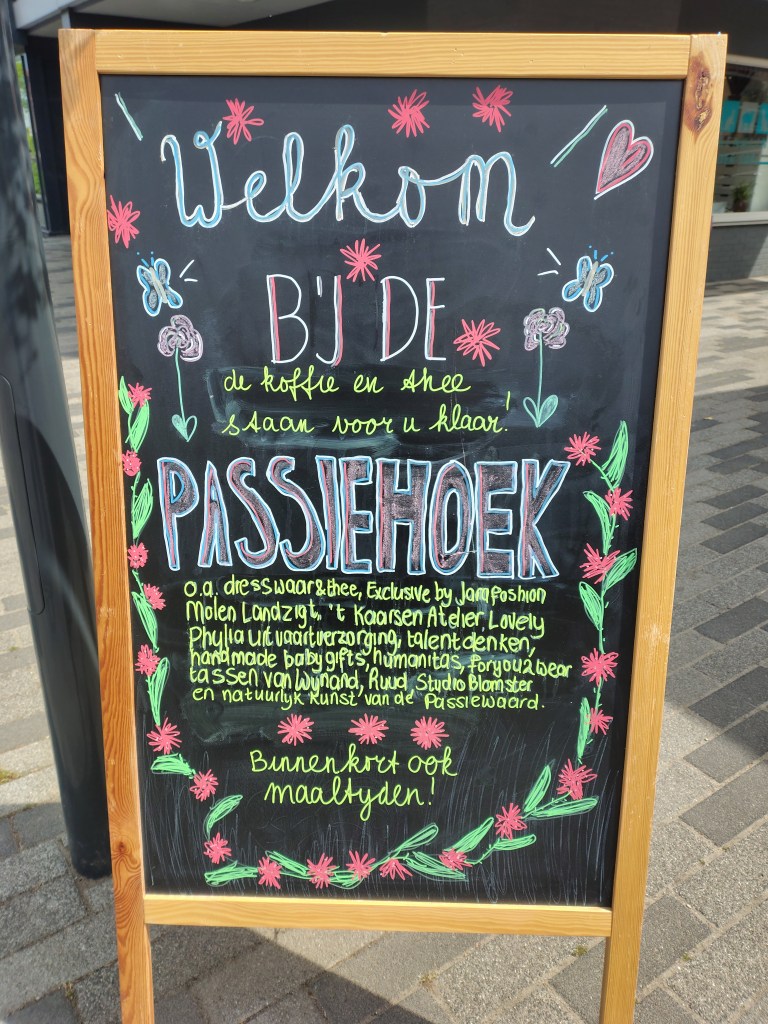 Welkom
BIJ DE
de koffie en thee
staan voor u klaar!
PASSIEHOEK
o.a. dresswaar&thee, Exclusive by Janafashion
Molen Landzigt, 't Kaarsen Atelier Lovely
Phylia uitvaartverzorging, talentdenken,
handmade babygifts, humanitas, foryou2wear
tassen van Wijnand, Ruud, Studio Blomster
en natuurlyk kunst van de Passiewaard.
Binnenkort ook
maaltyden!